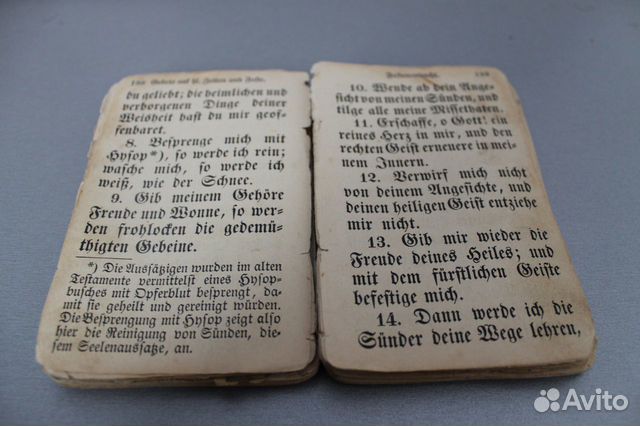 Gebete auf hl. Zeiten und Feste.
du geliebt; die heimlichen und
verborgenen Dinge deiner
Weisheit hast du mir geof=
fenbaret.
8. Besprenge mich mit
Hysop*), so werde ich rein;
wasche mich, so werde ich
weiß, wie der Schnee.
9. Gib meinem Gehöre
Freude und Wonne, so wer=
den frohlocken die gedemü=
thigten Gebeine.
*) Die Aussätzigen wurden im alten
Testamente vermittelst eines Hysop=
busches mit Opferblut besprengt, da=
mit sie geheilt und gereinigt würden.
Die Besprengung mit Hysop zeigt also
hier die Reinigung von Sünden, die=
sem Seelenaussatze, an.
10. Wende ab dein Ange=
sicht von meinen Sünden, und
tilge alle meine Missethaten.
11. Erschaffe, o Gott! ein
reines Herz in mir, und den
rechten Geist erneuere in mei=
nem Innern.
12. Verwirf mich nicht
von deinem Angesichte, und
deinen heiligen Geist entziehe
mir nicht.
13. Gib mir wieder die
Freude deines Heiles; und
mit dem fürstlichen Geiste
befestige mich.
14. Dann werde ich die
Sünder deine Wege lehren,
Avito